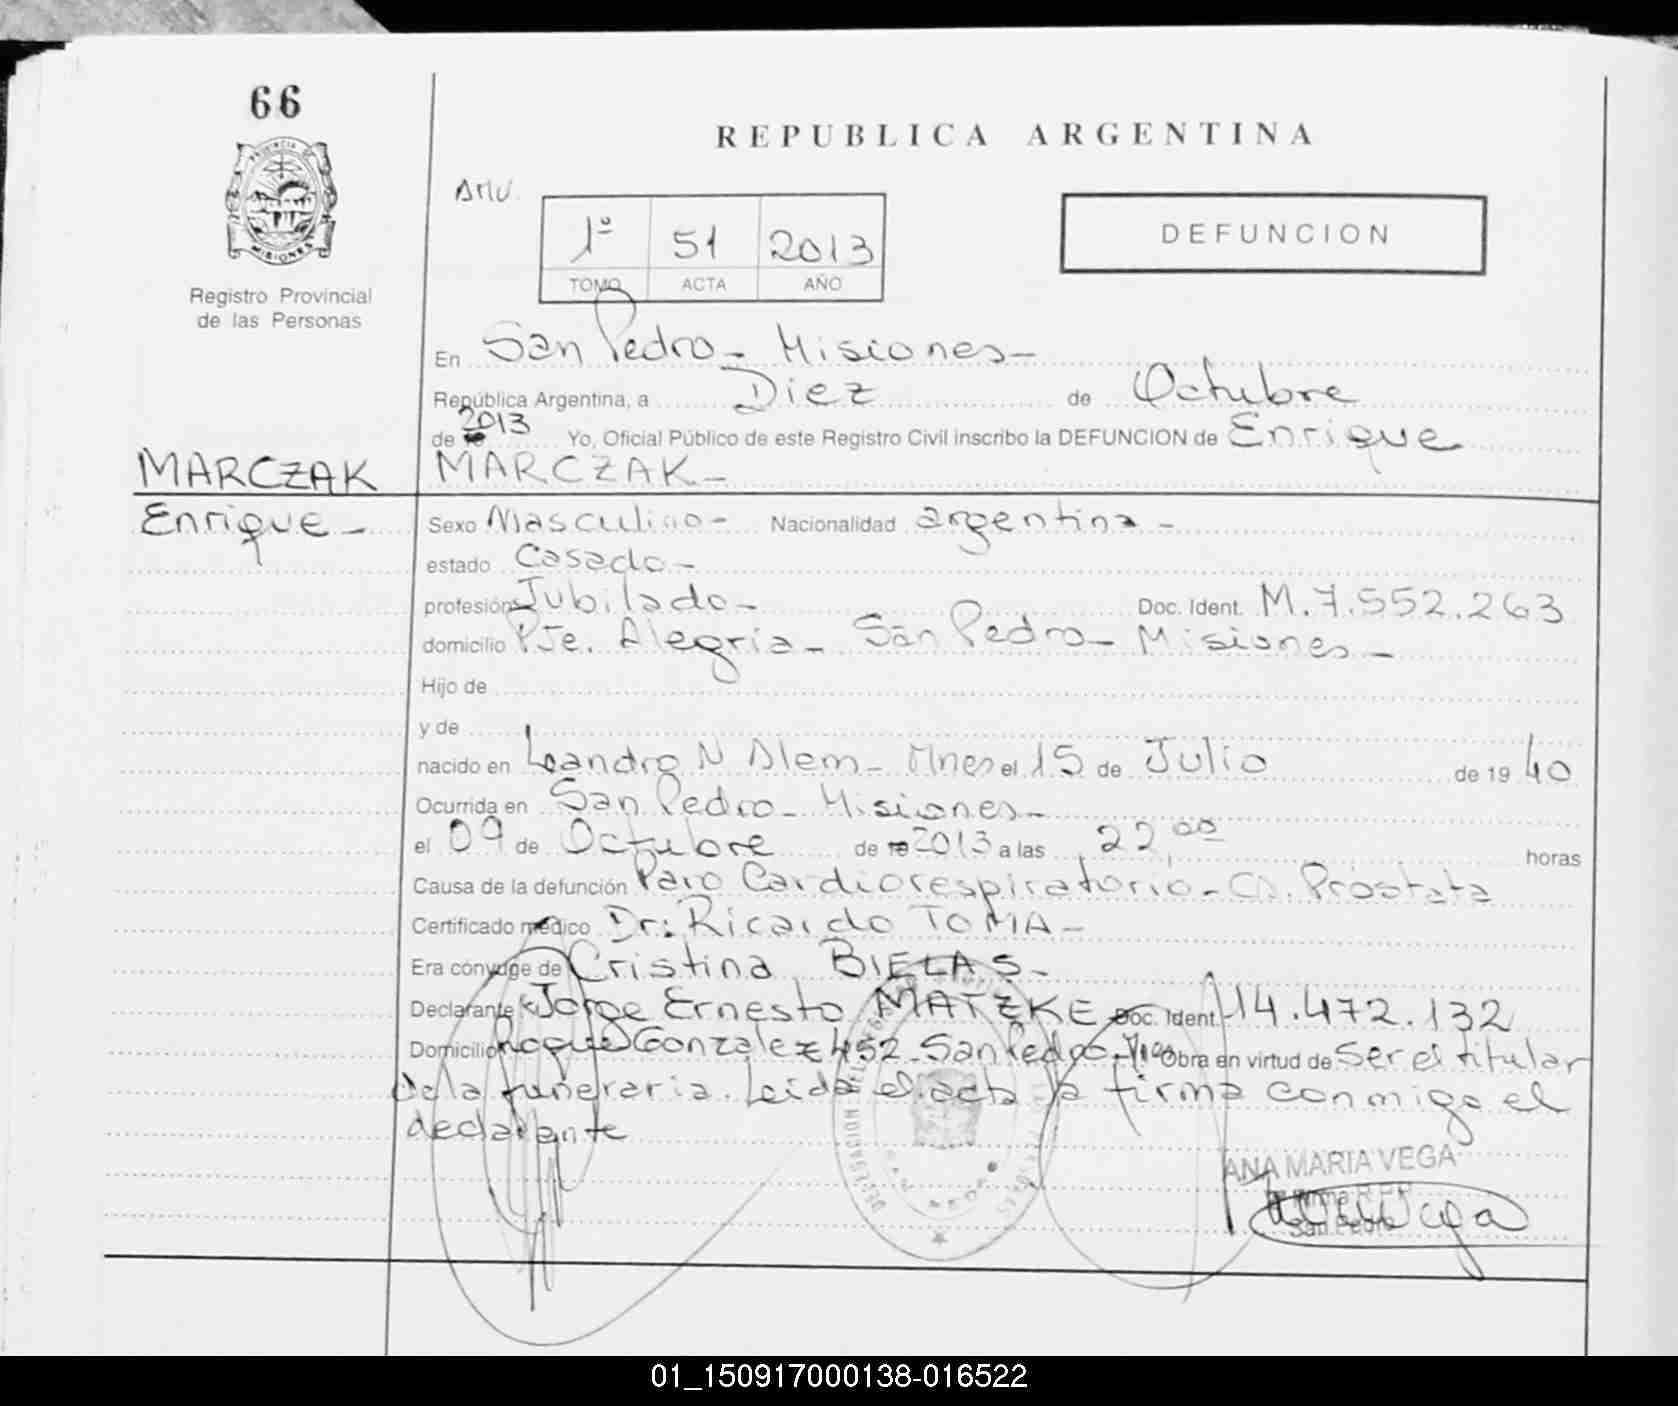 66
REPUBLICA ARGENTINA
PROVINCIA DE
MISIONES
Registro Provincial
de las Personas
1º 51 2013
TOMO ACTA AÑO
DEFUNCION
En San Pedro - Misiones -
República Argentina, a Diez de Octubre
de 2013 Yo, Oficial Público de este Registro Civil inscribo la DEFUNCION de Enrique
MARCZAK MARCZAK -
Enrique - Sexo Masculino - Nacionalidad argentina -
estado Casado -
profesión Jubilado - Doc. Ident. M. 7.552.263
domicilio Pje. Alegria - San Pedro - Misiones -
Hijo de
y de
nacido en Leandro N Alem - Mnes el 15 de Julio de 19 40
Ocurrida en San Pedro - Misiones -
el 09 de Octubre de 2013 a las 22,00 horas
Causa de la defunción Paro Cardiorespiratorio - Ca. Prostata
Certificado médico Dr: Ricardo TOMA -
Era cónyuge de Cristina BIELAS -
Declarante Jorge Ernesto MATZKE Doc. Ident. 14.472.132
Domicilio Roque Gonzalez 452 - San Pedro - Obra en virtud de Ser el titular
de la funeraria. Leida el acta la firma conmigo el
declarante
ANA MARIA VEGA
San Pedro
01_150917000138-016522